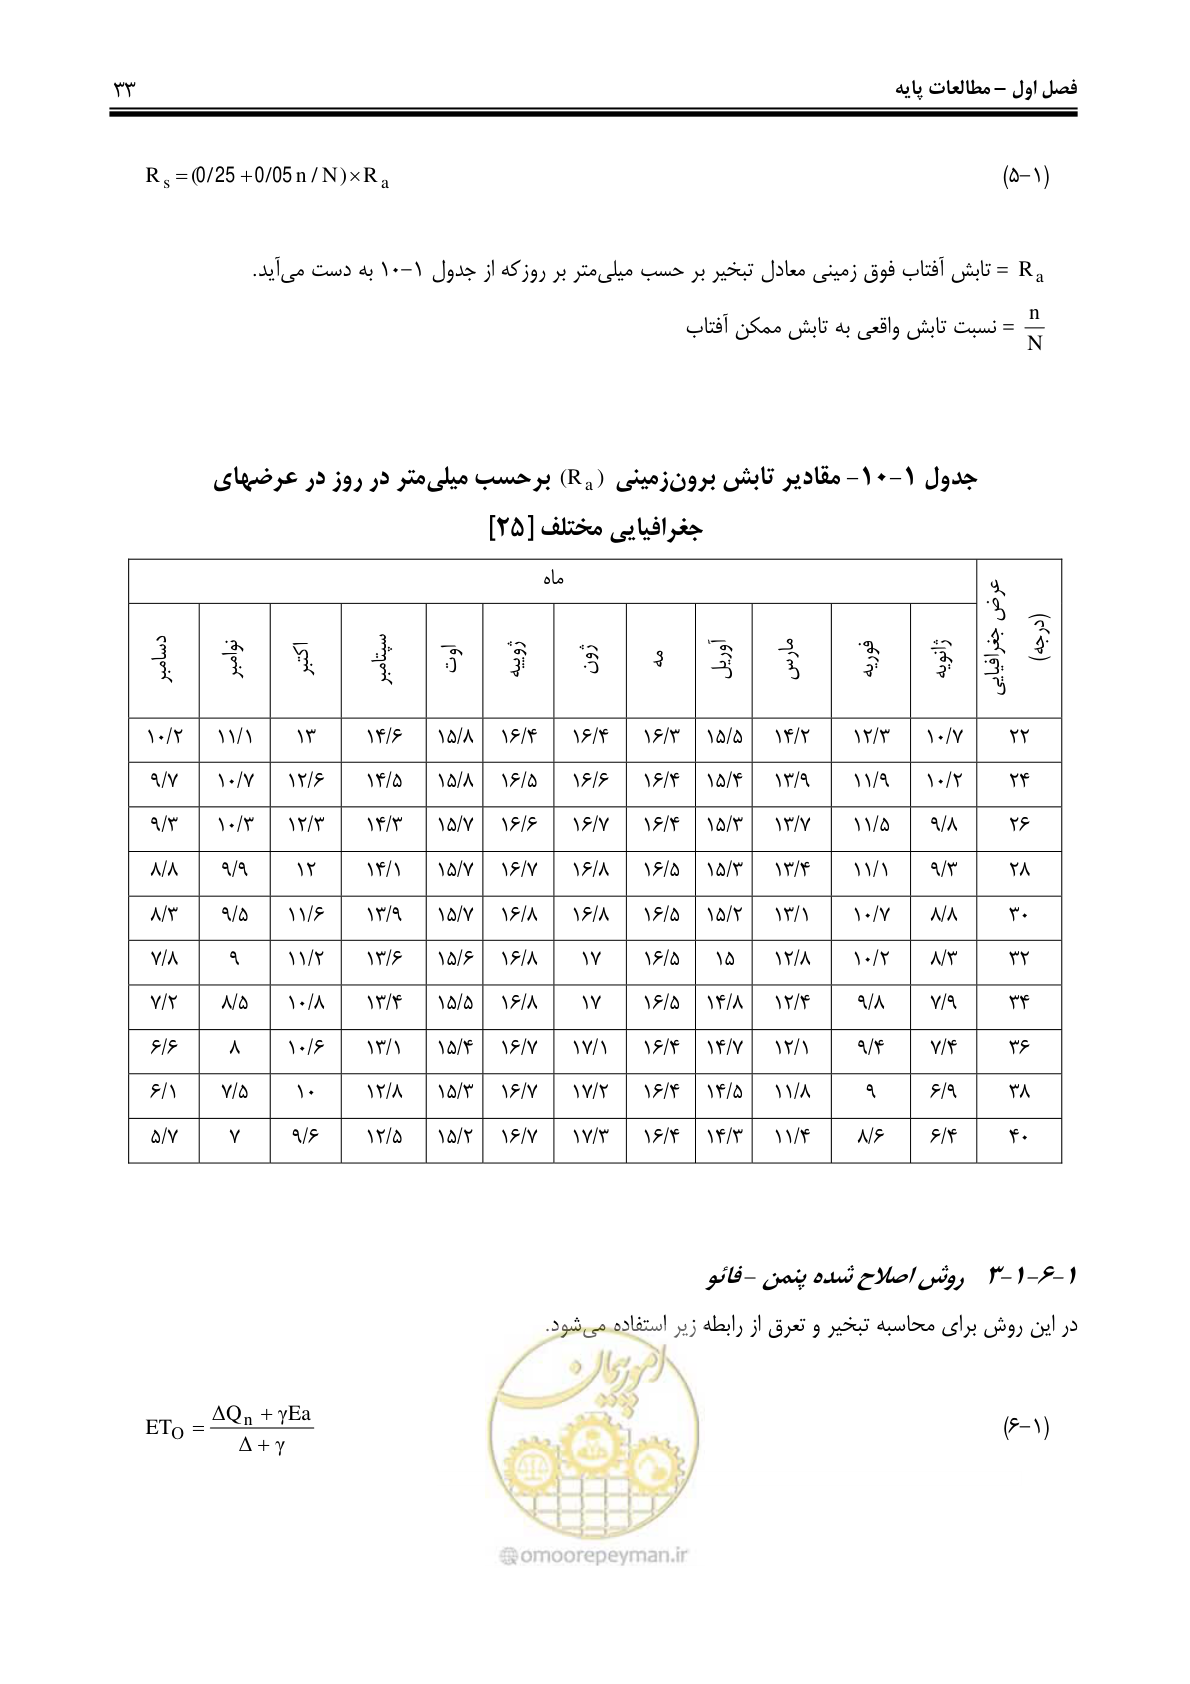 فصل اول – مطالعات پایه ۳۳
R s = (0/25 + 0/05 n / N) × R a (۵-۱)
R a = تابش آفتاب فوق زمینی معادل تبخیر بر حسب میلی‌متر بر روزکه از جدول ۱-۱۰ به دست می‌آید.
n/N = نسبت تابش واقعی به تابش ممکن آفتاب
جدول ۱-۱۰- مقادیر تابش برون‌زمینی (R a) برحسب میلی‌متر در روز در عرضهای
جغرافیایی مختلف [۲۵]
عرض جغرافیایی (درجه) ماه
ژانویه فوریه مارس آوریل مه ژون ژوییه اوت سپتامبر اکتبر نوامبر دسامبر
۲۲ ۱۰/۷ ۱۲/۳ ۱۴/۲ ۱۵/۵ ۱۶/۳ ۱۶/۴ ۱۶/۴ ۱۵/۸ ۱۴/۶ ۱۳ ۱۱/۱ ۱۰/۲
۲۴ ۱۰/۲ ۱۱/۹ ۱۳/۹ ۱۵/۴ ۱۶/۴ ۱۶/۶ ۱۶/۵ ۱۵/۸ ۱۴/۵ ۱۲/۶ ۱۰/۷ ۹/۷
۲۶ ۹/۸ ۱۱/۵ ۱۳/۷ ۱۵/۳ ۱۶/۴ ۱۶/۷ ۱۶/۶ ۱۵/۷ ۱۴/۳ ۱۲/۳ ۱۰/۳ ۹/۳
۲۸ ۹/۳ ۱۱/۱ ۱۳/۴ ۱۵/۳ ۱۶/۵ ۱۶/۸ ۱۶/۷ ۱۵/۷ ۱۴/۱ ۱۲ ۹/۹ ۸/۸
۳۰ ۸/۸ ۱۰/۷ ۱۳/۱ ۱۵/۲ ۱۶/۵ ۱۶/۸ ۱۶/۸ ۱۵/۷ ۱۳/۹ ۱۱/۶ ۹/۵ ۸/۳
۳۲ ۸/۳ ۱۰/۲ ۱۲/۸ ۱۵ ۱۶/۵ ۱۷ ۱۶/۸ ۱۵/۶ ۱۳/۶ ۱۱/۲ ۹ ۷/۸
۳۴ ۷/۹ ۹/۸ ۱۲/۴ ۱۴/۸ ۱۶/۵ ۱۷ ۱۶/۸ ۱۵/۵ ۱۳/۴ ۱۰/۸ ۸/۵ ۷/۲
۳۶ ۷/۴ ۹/۴ ۱۲/۱ ۱۴/۷ ۱۶/۴ ۱۷/۱ ۱۶/۷ ۱۵/۴ ۱۳/۱ ۱۰/۶ ۸ ۶/۶
۳۸ ۶/۹ ۹ ۱۱/۸ ۱۴/۵ ۱۶/۴ ۱۷/۲ ۱۶/۷ ۱۵/۳ ۱۲/۸ ۱۰ ۷/۵ ۶/۱
۴۰ ۶/۴ ۸/۶ ۱۱/۴ ۱۴/۳ ۱۶/۴ ۱۷/۳ ۱۶/۷ ۱۵/۲ ۱۲/۵ ۹/۶ ۷ ۵/۷
۱-۶-۱-۳ روش اصلاح شده پنمن – فائو
در این روش برای محاسبه تبخیر و تعرق از رابطه زیر استفاده می‌شود.
امور پیمان
ETO = (ΔQn + γEa) / (Δ + γ) (۶-۱)
@omoorepeyman.ir